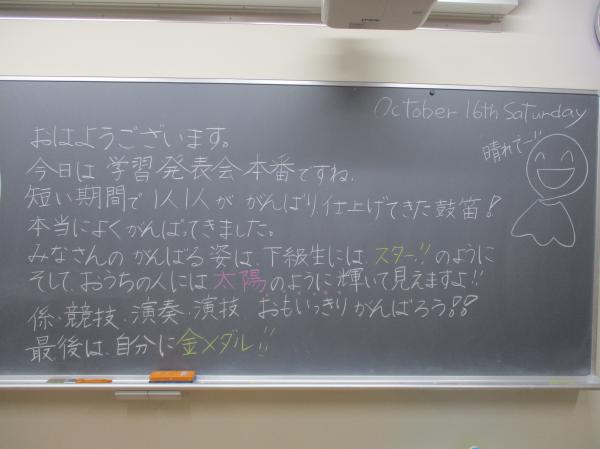 October 16th Saturday
おはようございます。
今日は 学習発表会本番ですね。
短い期間で1人1人が がんばり、仕上げてきた鼓笛!
本当によくがんばってきました。
みなさんの がんばる姿は、下級生には スター!! のように
そして、おうちの人には 太陽のように 輝いて見えますよ!!
係・競技・演奏・演技 おもいっきりがんばろう!!
最後は、自分に金メダル!!
晴れでーす